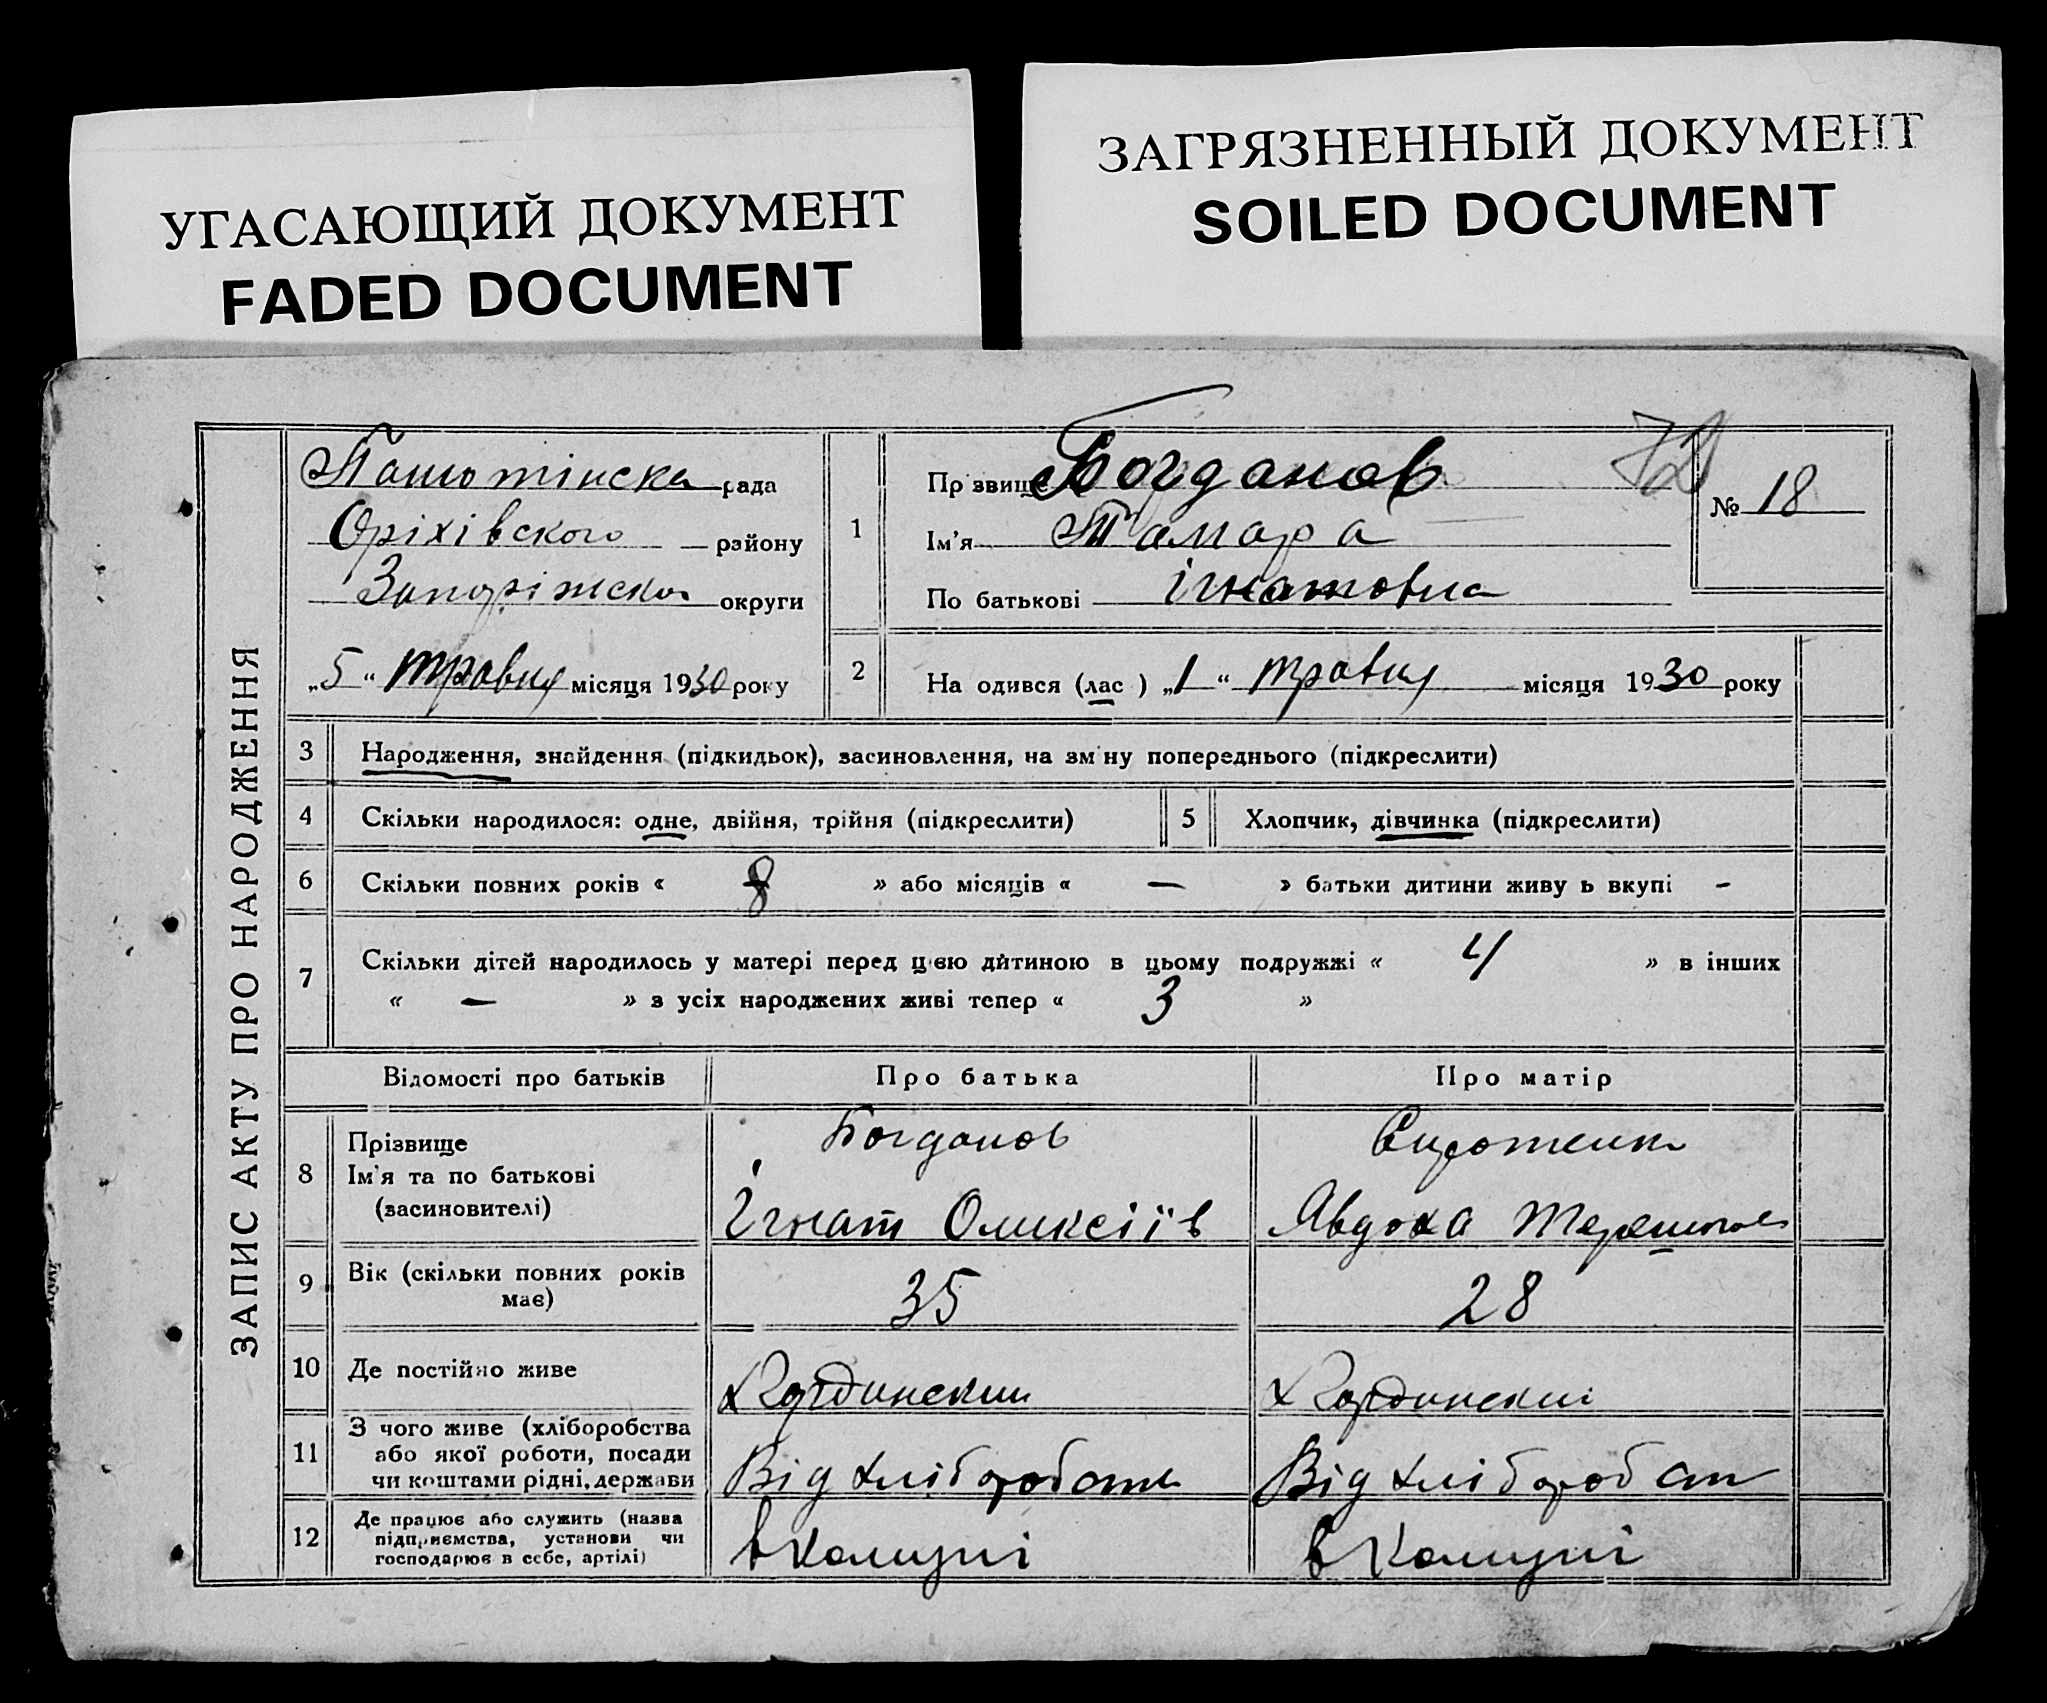 УГАСАЮЩИЙ ДОКУМЕНТ
FADED DOCUMENT
ЗАГРЯЗНЕННЫЙ ДОКУМЕНТ
SOILED DOCUMENT
ЗАПИС АКТУ ПРО НАРОДЖЕННЯ
рада
Оріхівского району
округи
„5“ травня місяця 1930 року
1
Прізвище Богданов
Ім'я Тамара
По батькові ігнатовна
№ 18
2
На одився (лас ) „1“ травня місяця 1930 року
3 Народження, знайдення (підкидьок), засиновлення, на зміну попереднього (підкреслити)
4 Скільки народилося: одне, двійня, трійня (підкреслити)
5 Хлопчик, дівчинка (підкреслити)
6 Скільки повних років « 8 » або місяців « — » батьки дитини живу ь вкупі -
7 Скільки дітей народилось у матері перед цією дитиною в цьому подружжі « 4 » в інших
« — » з усіх народжених живі тепер « 3 »
Відомості про батьків
Про батька
Про матір
8
Прізвище
Ім'я та по батькові
(засиновителі)
Богданов
Ігнат Оликсіїв
Явдоха
9
Вік (скільки повних років
має)
35
28
10 Де постійно живе
11
З чого живе (хліборобства
або якої роботи, посади
чи коштами рідні, держави
Від хліборобств
Від хліборобст
12
Де працює або служить (назва
підприємства, установи чи
господарює в себе, артілі)
в Комуні
в Комуні